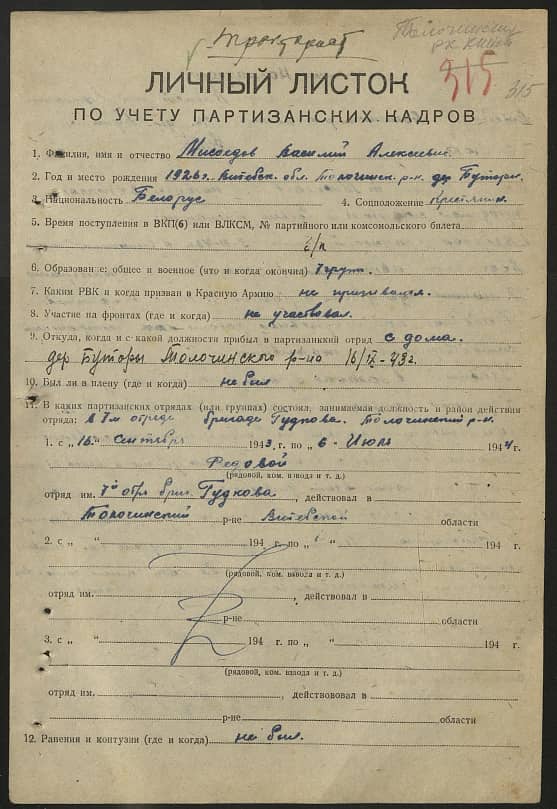 Толочинский
РК КП(б)Б
315 315
ЛИЧНЫЙ ЛИСТОК
ПО УЧЕТУ ПАРТИЗАНСКИХ КАДРОВ
1. Фамилия, имя и отчество Мисоедов Василий Алексеевич
2. Год и место рождения 1926 г. Витебск. обл. Толочинск. р-н. дер Буторы.
3. Национальность Белорус 4. Соцположение Крестьянин.
5. Время поступления в ВКП(б) или ВЛКСМ, № партийного или комсомольского билета
б/п
6. Образование: общее и военное (что и когда окончил) 7 групп.
7. Каким РВК и когда призван в Красную Армию не призывался.
8. Участие на фронтах (где и когда) не участвовал.
9. Откуда, когда и с какой должности прибыл в партизанский отряд с дома.
дер Буторы Толочинского р-на 16/IX-43 г.
10. Был ли в плену (где и когда) не был
11. В каких партизанских отрядах (или группах) состоял, занимаемая должность и район действия
отряда: в 7м отряде бригады Гудкова. Толочинский р-н.
1. с „16" Сентября 1943 г. по „6" Июль 1944 г.
Рядовой
(рядовой, ком. взвода и т. д.)
отряд им. 7й отр. бриг. Гудкова, действовал в
Толочинский р-не Витебской области
2. с „ " 194 г. по „ " 194 г.
(рядовой, ком. взвода и т. д.)
отряд им. , действовал в
р-не области
3. с „ " 194 г. по „ " 194 г.
(рядовой, ком. взвода и т. д.)
отряд им. , действововал в
р-не области
12. Ранения и контузии (где и когда) не был.